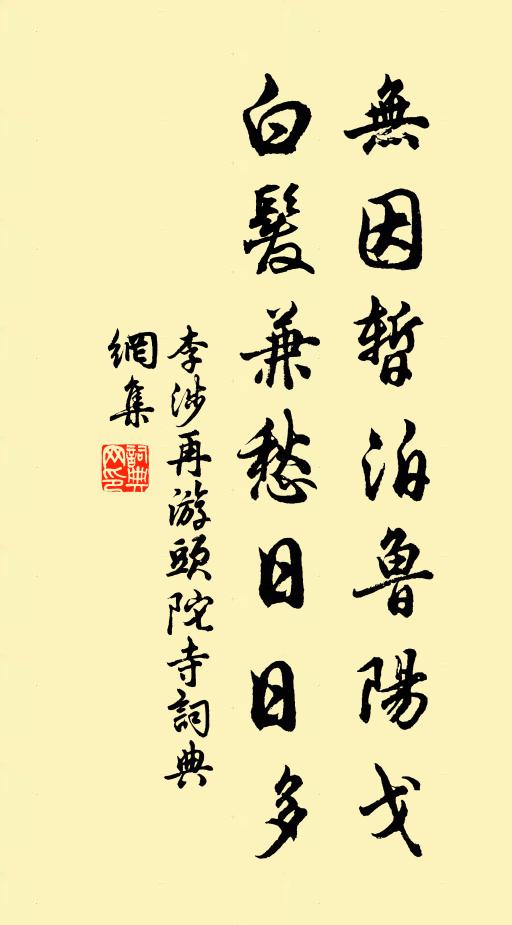 無因暫泊魯陽戈
白髮兼愁日日多
李涉再游頭陀寺詞典
網集
詞典網印